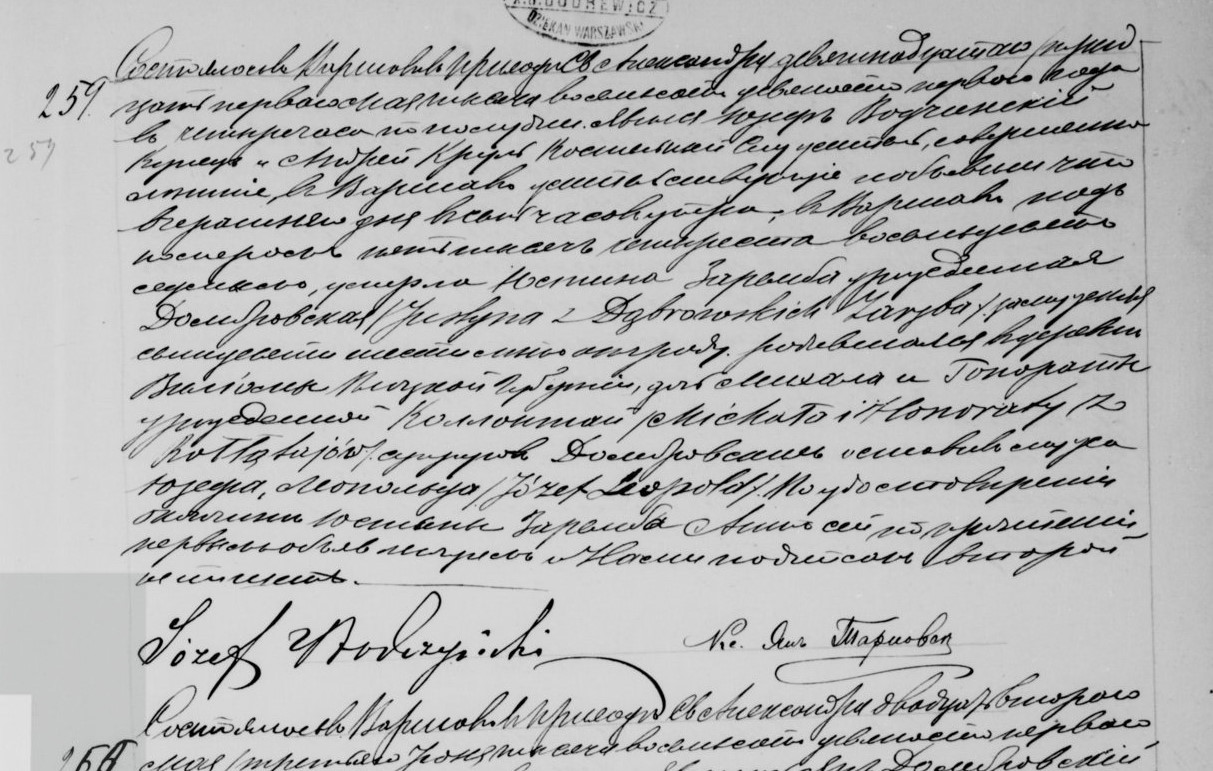 DZIEKAN WARSZAWSKI
259.
259
Состоялось въ Варшавѣ въ приходѣ Св Александра девятнадцатаго /тридцать
перваго Мая тысяча восемьсотъ девяносто перваго года
въ четыре часа по полудни. Явились Юзефъ Водчинскій
и Андрей Круль Костельный Служитель, совершеннолѣтніе,
въ Варшавѣ жительствующіе и объявили что
вчерашняго дня въ часовъ утра, въ Варшавѣ подъ
номеромъ пять тысячъ четыреста восемьдесятъ
седьмымъ, умерла Юстина Заремба урожденная
Домбровская /Justyna z Dąbrowskich Zaręba/, замужняя
семидесяти шести лѣтъ отъ роду. родившаяся въ деревни
Губерніи, дочь Михала и Гонораты
урожденной Коллонтай /Michała i Honoraty z
Kołłątajów/. супруговъ Домбровскихъ оставивъ мужа
Юзефа, Леопольда /Józef Leopold/. По удостовѣреніи
о кончинѣ Юстины Заремба Актъ сей по прочтеніи
первымъ объявляющимъ и Нами подписанъ второй
не пишетъ.
Józef Wodczyński
Кс. Янъ Тарновск
Состоялось въ Варшавѣ въ приходѣ Св Александра двадцать втораго
Мая /третьяго Іюня тысяча восемьсотъ девяносто перваго
Домбровскій